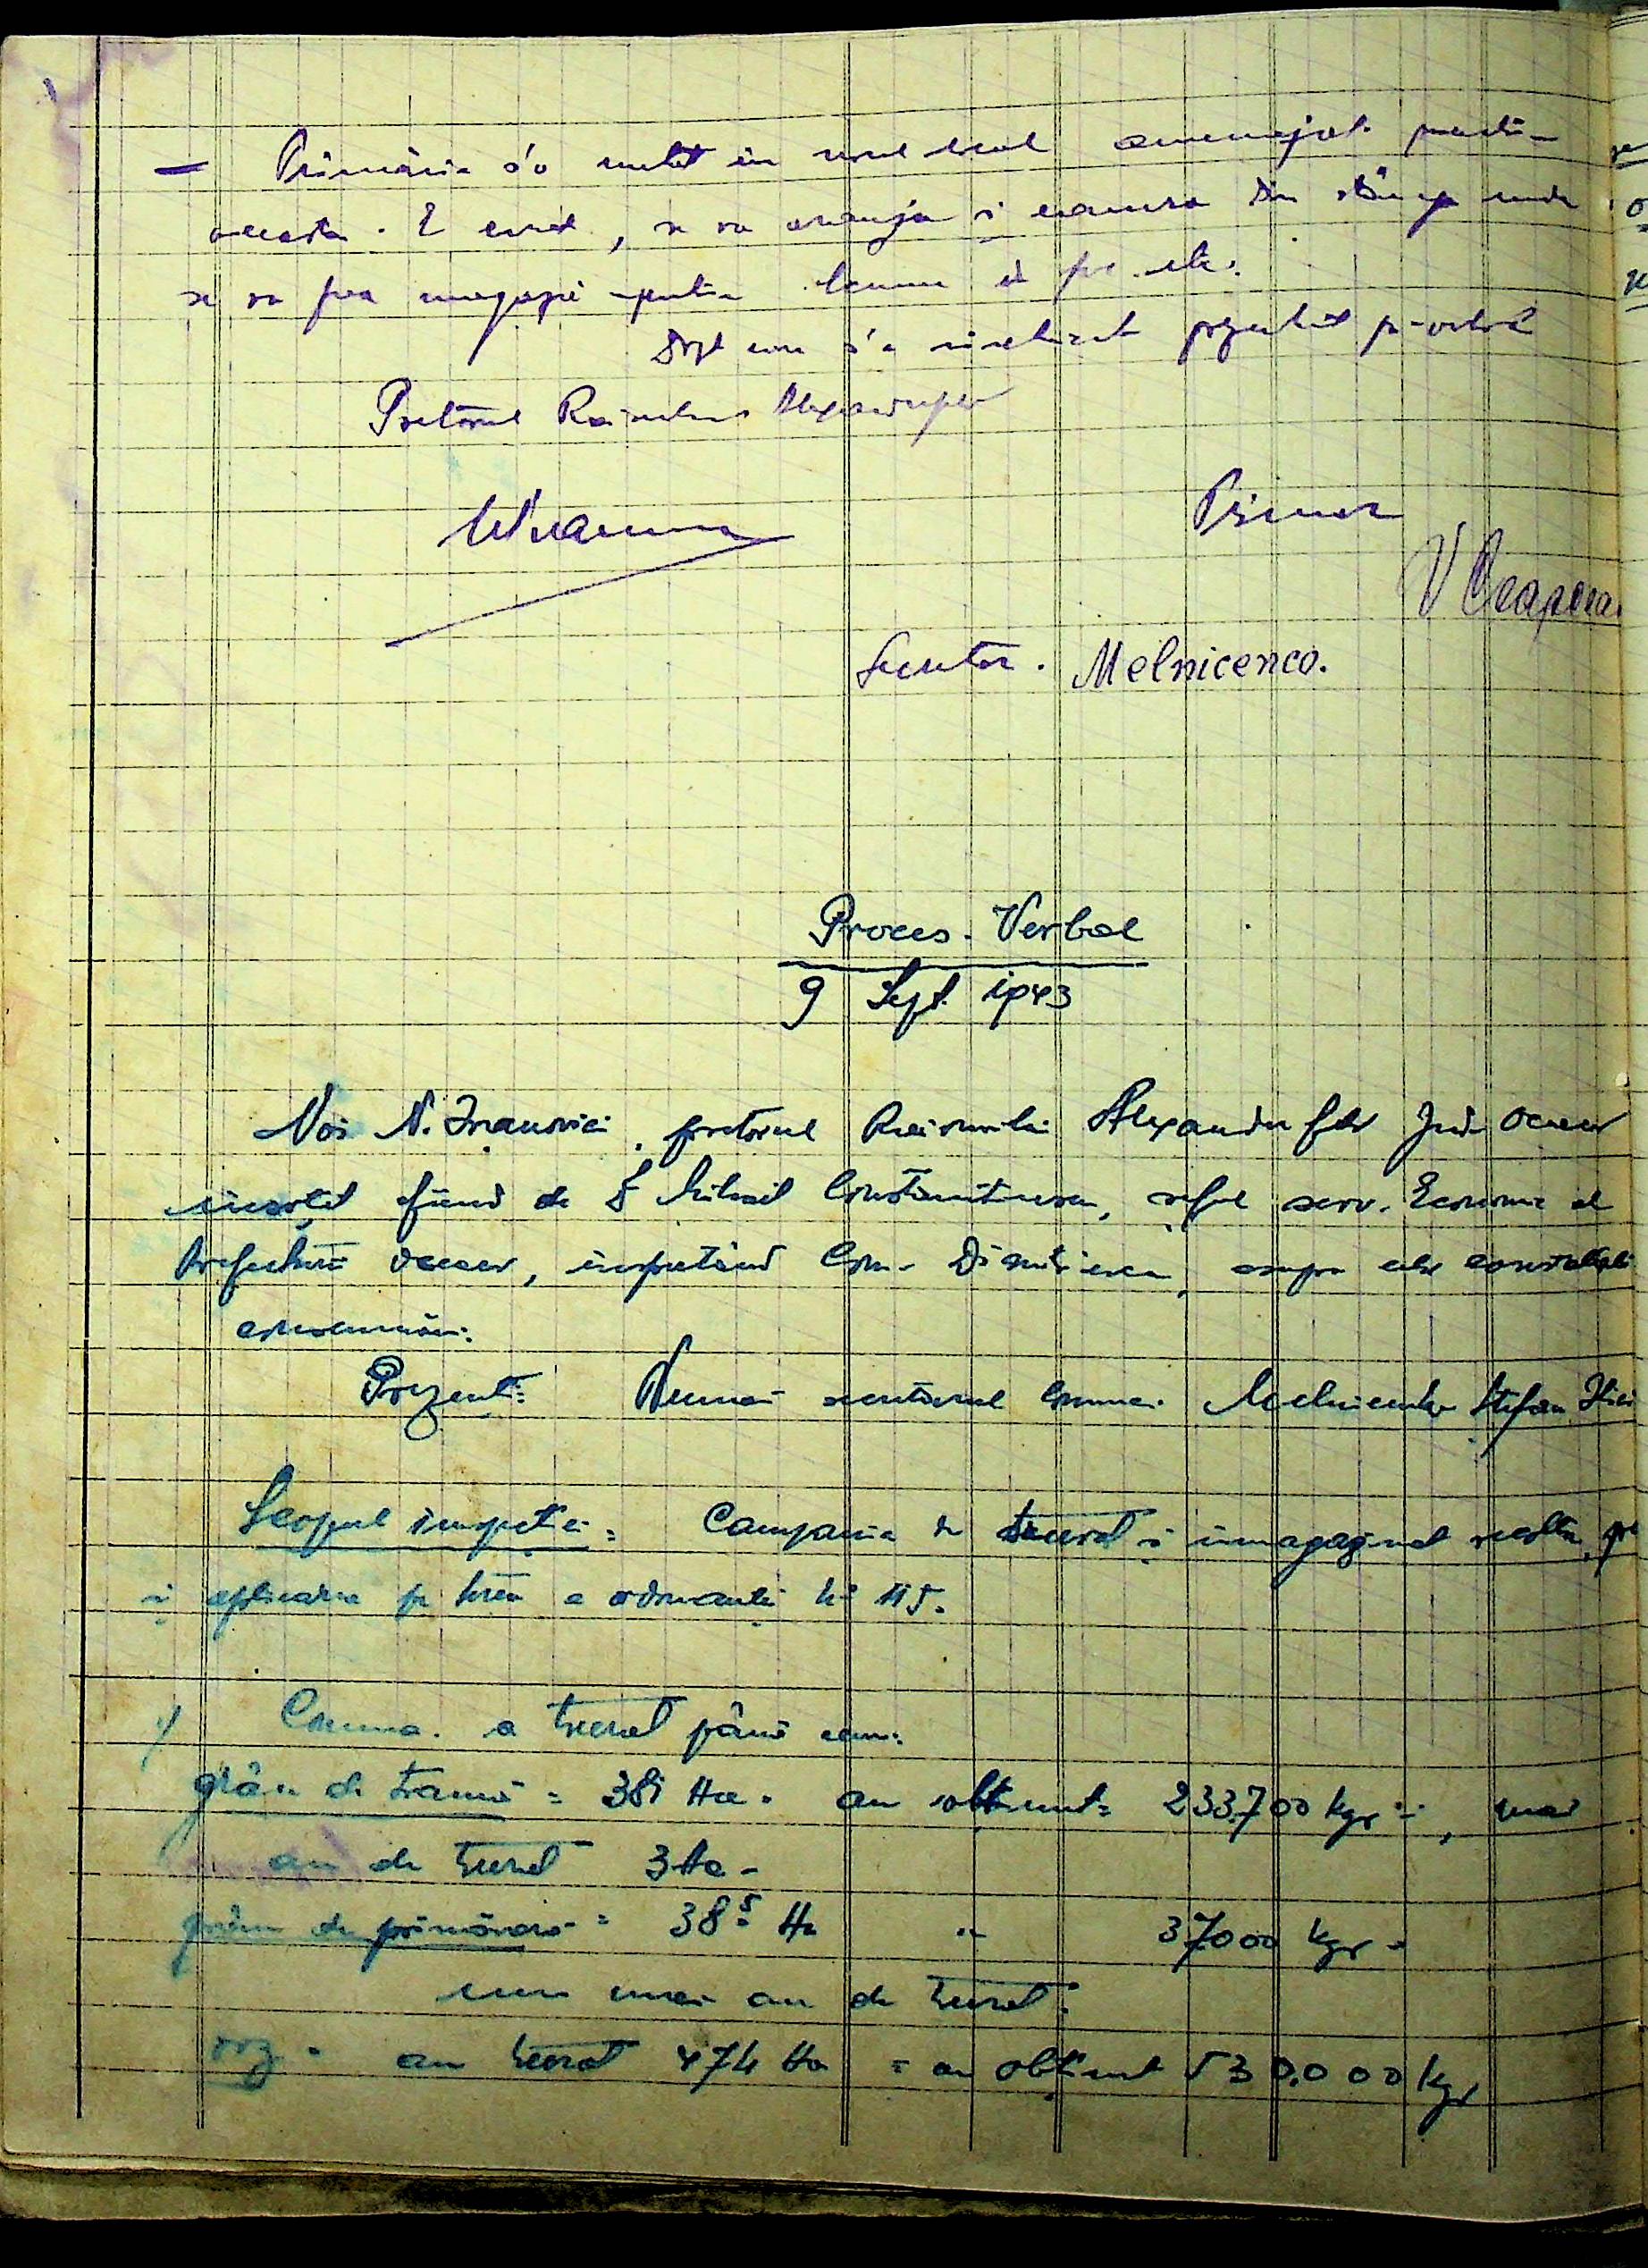 — Primăria s'a mutat in noul local amenajat pentru
aceasta. E curat, se va aranja și camera din stânga unde
se va face magazie pentru
Drept care s'a încheiat prezentul pr. verbal
Pretorul Raionului Alexandrofeld
Primar
V
Secretar. Melnicenco.
Proces-Verbal
9 Sept. 1943
Noi N. Ivanovici, pretorul Raionului Alexandrofeld Jud. Oceacov
insoțit fiind de D Mihail Constantinescu, șeful serv. Economic al
Prefecturii Oceacov, inspectând Com. asupra celor constatate
consemnăm:
Prezenți: Numai secretarul comunei Melnicenko Ștefan
Scopul inspecției = Campania de treerat și inmagazinat recolta,
și aplicarea pe teren a ordonanței No 115.
1/ Comuna a treerat până acum:
grâu de toamnă = 381 Ha. au obținut = 233.700 kgr, mai
au de treerat 3 Ha -
grâu de primăvară = 38⁵ Ha " 37000 kgr -
nu mai au de treerat.
orz - au treerat 474 Ha = au obținut 530.000 kgr